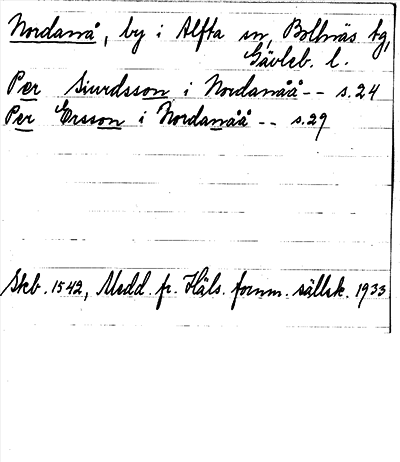 Nordanå, by i Alfta sn, Bollnäs tg,
Gävleb. l.
Per Siurdsson i Nordanåå -- s. 24
Per Ersson i Nordanåå -- s. 29
Skb. 1542, Medd. fr. Häls. fornm. sällsk. 1933